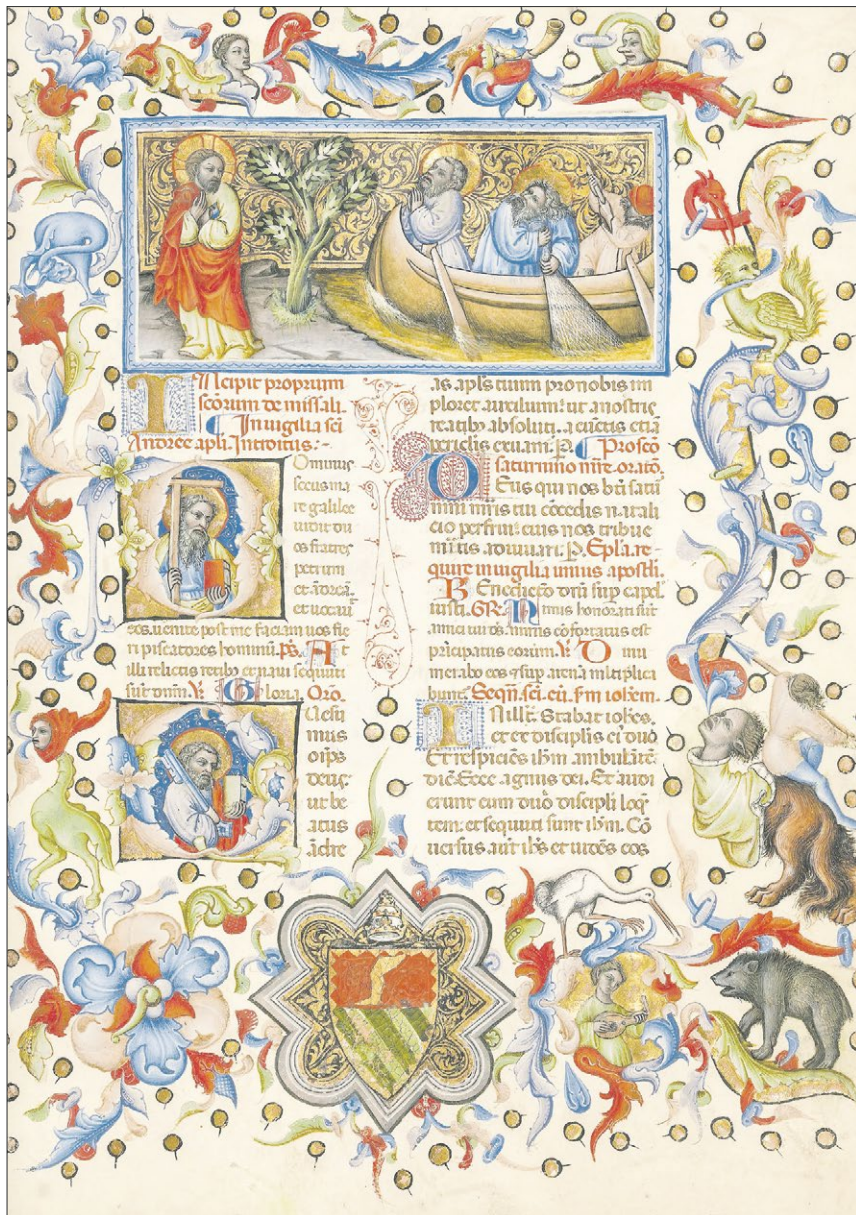 INcipit proprium
scõrum de missali.
In uigilia sci
Andree apli. Introitus:-
Dominus
secus ma
re galilee
uidit du
os fratres
petrum
et ãdreã.
et uocauit
eos. uenite post me faciam uos fie
ri piscatores hominũ. p̃s. At
illi relictis retibȝ et naui sequuti
sũt dñm. Ṽ. Gloria. Oro.
Quesu
mus
oip̃s
deus.
ut be
atus
ãdre
as. apl̃s tuum pro nobis im
ploret auxilium: ut a nostris
reatibȝ absoluti. a cũctis etiã
periclis exuam̃. P. Pro scõ
saturnino mr̃e. orato.
Deus qui nos bt̃i satur
nini mr̃is tui cõcedis natali
cio perfrui: eius nos tribue
mitis adiuuari. P. Epl̃a re
quire in uigilia unius apostl̃i.
Benedictio dñi sup capd̃
iusti. GR̃. Nimis honorati sũt
amici tui ds̃. nimis cõfortatus est
prĩcipatus eorum. Ṽ. Dinnu
merabo eos et sup arenã multiplica
buntr̃. Seqũ. sci. eũ. s̃m ioh̃em.
IN ill̃t̃. Stabat ioh̃es.
et ex discipl̃is eiꝰ duo
Et respiciẽs ih̃m ambulãtẽ
dic̃. Ecce agnus dei. Et audi
erunt eum duo discipl̃i loq̃
tem. et sequuti sunt ih̃m. Cõ
uersus aut̃ ih̃s et uidẽs eos